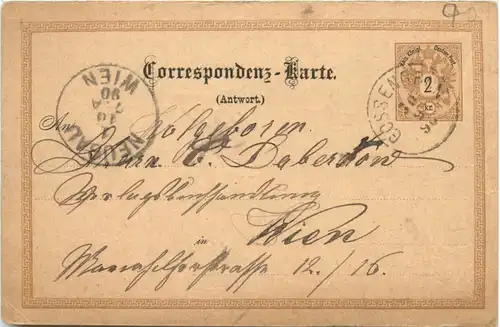 Correspondenz-Karte.
(Antwort.)
2
kr.
WIEN
NEUBAU
90
An
Wohlgeboren
Herrn C. Daberkow
Verlagsbuchhandlung
in Wien
Mariahilferstrasse 12./16.